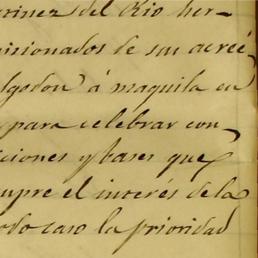 rinez del Rio her-
isionados de su acree
lgodon á maquila en
para celebrar con
iciones y bases que
mpre el interés de la
odo caso la prioridad